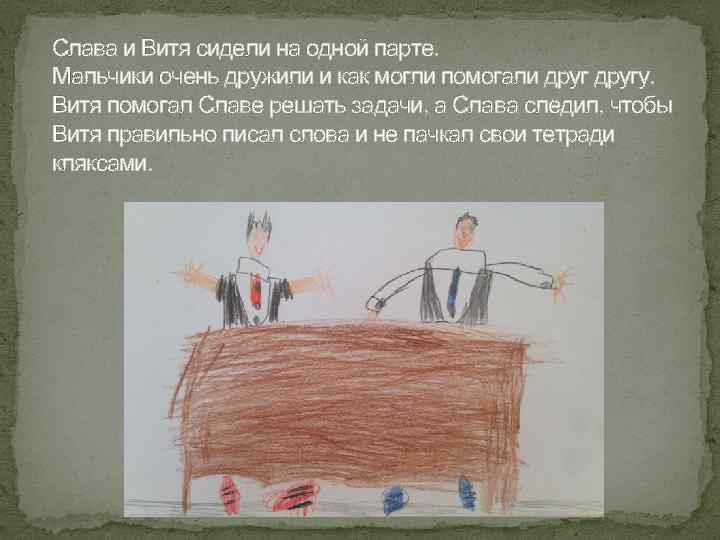 Слава и Витя сидели на одной парте.
Мальчики очень дружили и как могли помогали друг другу.
Витя помогал Славе решать задачи, а Слава следил, чтобы
Витя правильно писал слова и не пачкал свои тетради
кляксами.